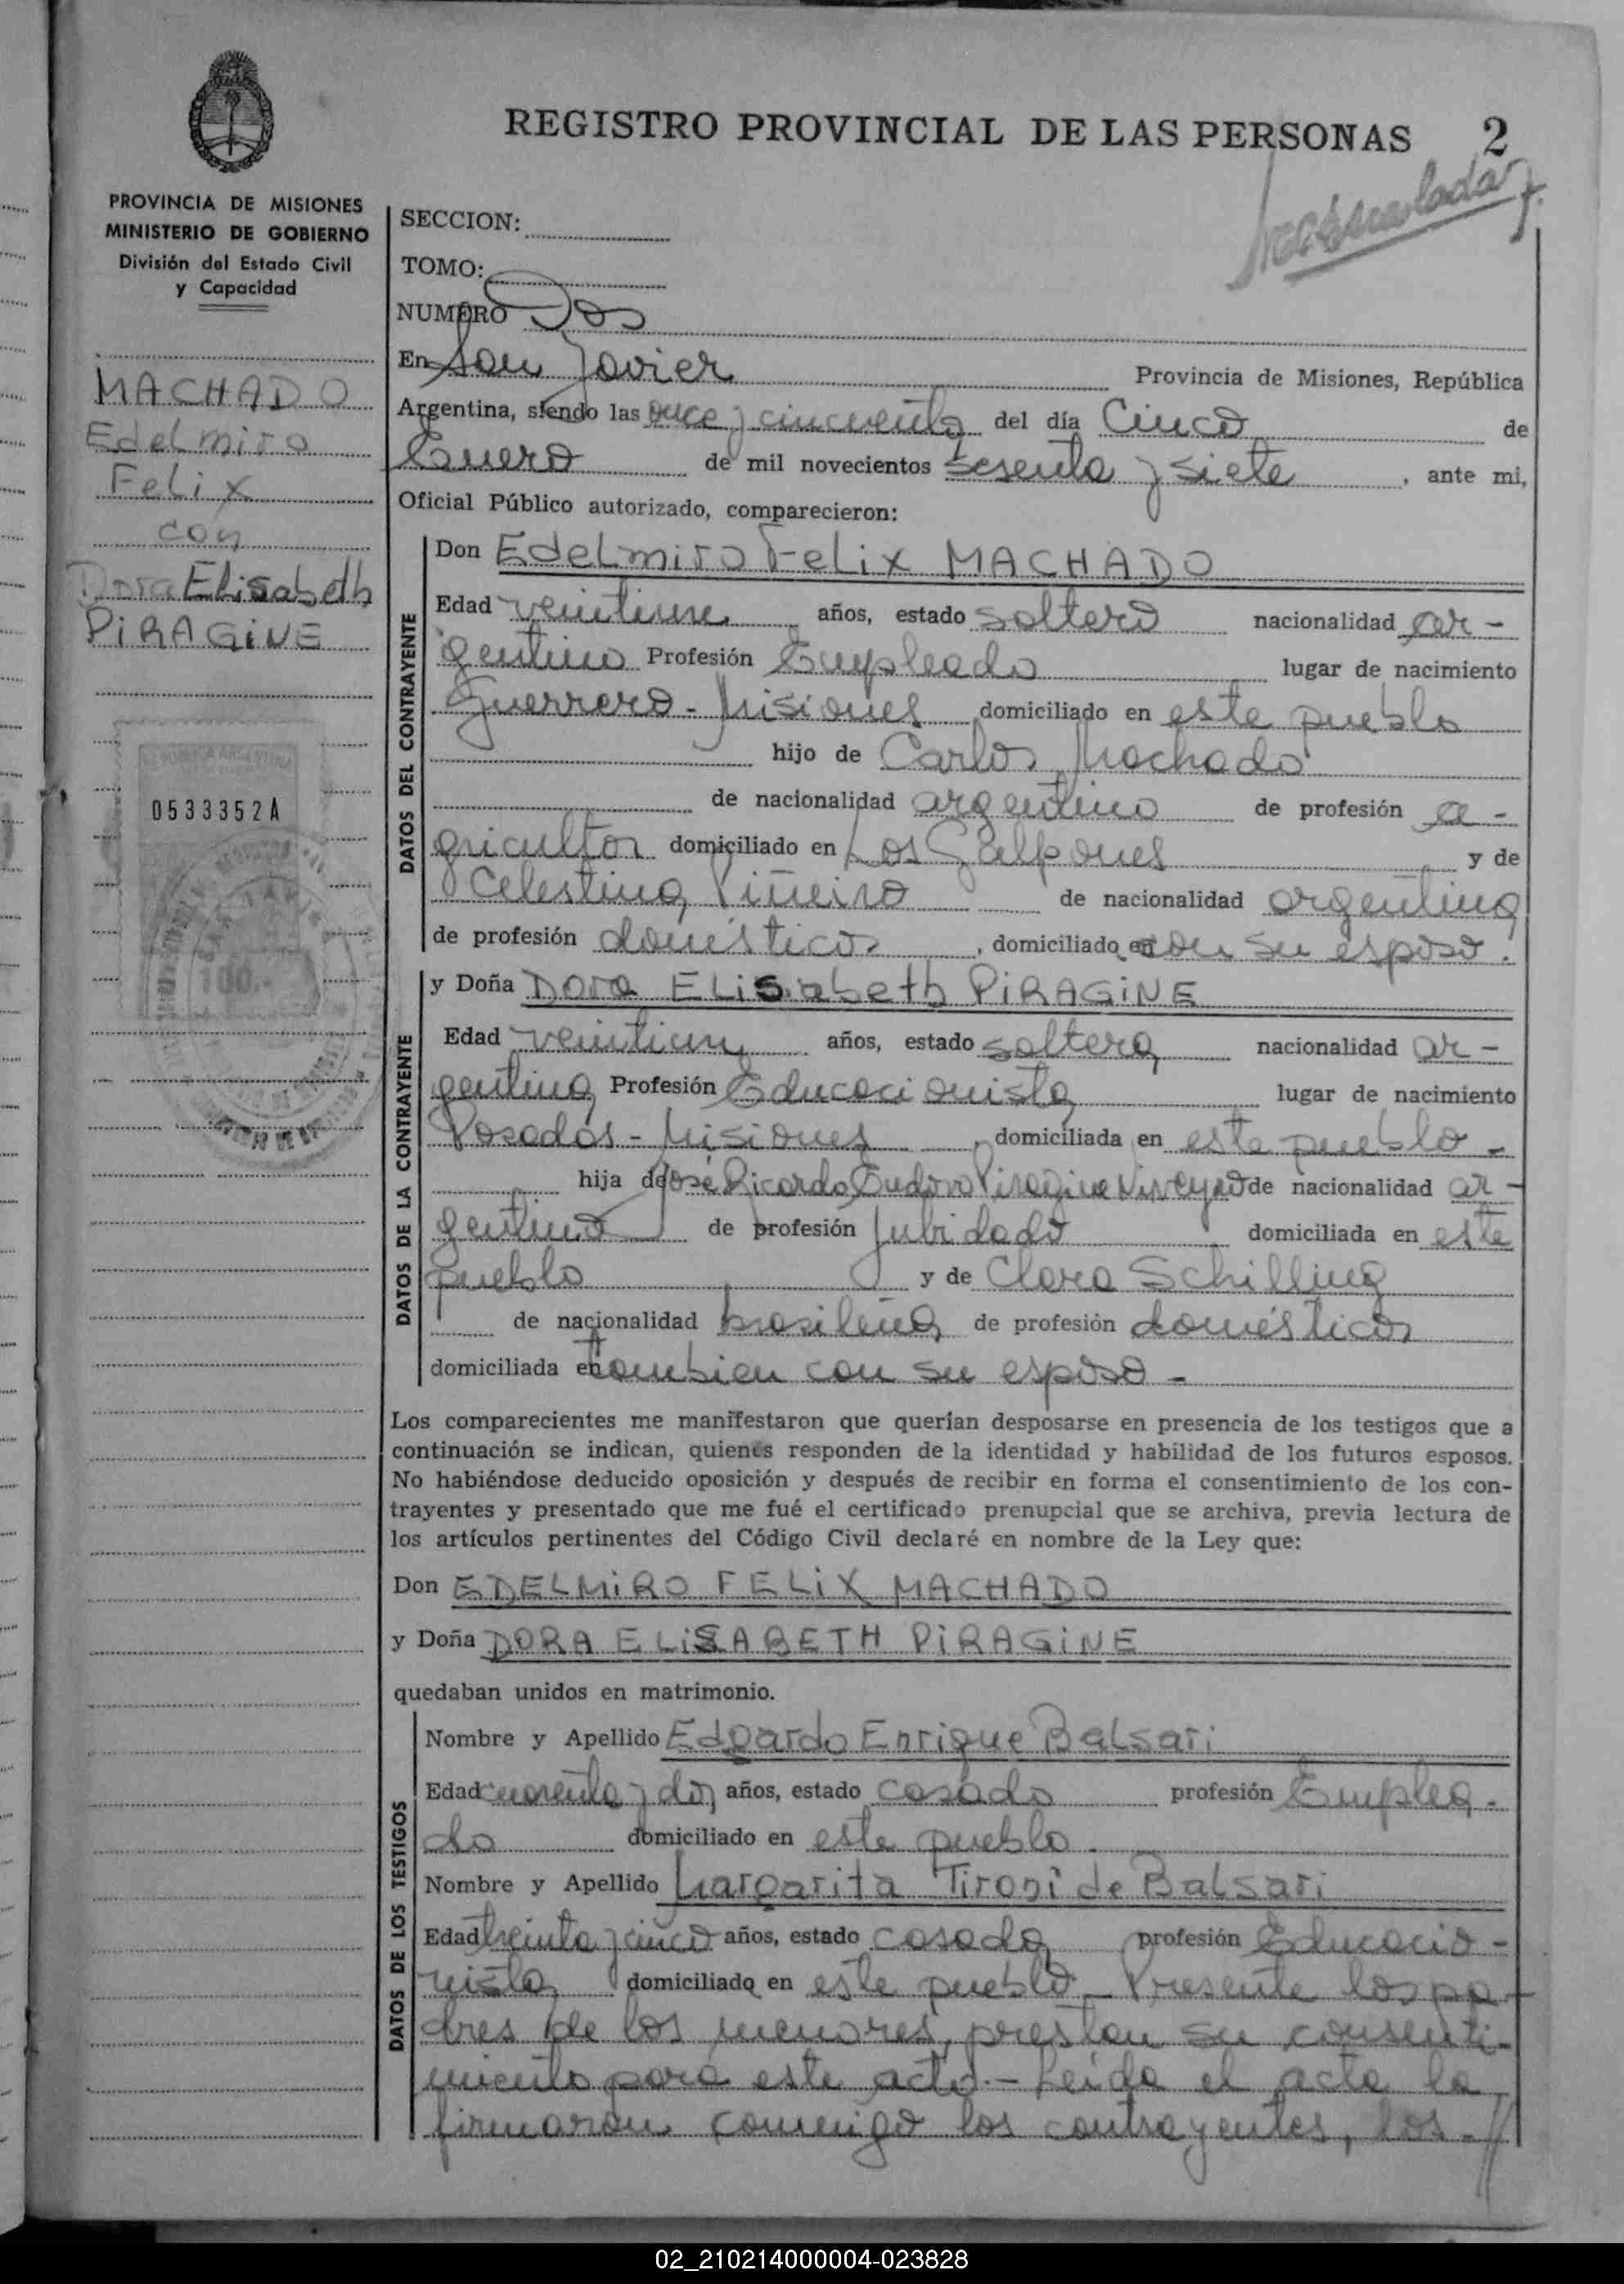 REGISTRO PROVINCIAL DE LAS PERSONAS 2
PROVINCIA DE MISIONES
MINISTERIO DE GOBIERNO
División del Estado Civil
y Capacidad
MACHADO
Edelmiro
Felix
con
Dora Elisabeth
PiRAGiNE
0533352A
100.-
SECCION:
TOMO:
NUMERO Dos
En San Javier Provincia de Misiones, República
Argentina, siendo las once y cincuenta del día Cinco de
Enero de mil novecientos sesenta y siete, ante mi,
Oficial Público autorizado, comparecieron:
DATOS DEL CONTRAYENTE
Don Edelmiro Felix MACHADO
Edad veintiun años, estado soltero nacionalidad ar-
gentino Profesión Empleado lugar de nacimiento
Guerrero - Misiones domiciliado en este pueblo
hijo de Carlos Machado
de nacionalidad argentino de profesión a-
gricultor domiciliado en Los Galpones y de
Celestina Piñeiro de nacionalidad argentina
de profesión domésticos, domiciliado en con su esposo.
DATOS DE LA CONTRAYENTE
y Doña Dora ELisabeth PiRAGiNE
Edad veintiun años, estado soltera nacionalidad ar-
gentina Profesión Educacionista lugar de nacimiento
Posadas - Misiones, domiciliada en este pueblo -
hija de José Ricardo Piragine Niveyro de nacionalidad ar-
gentino de profesión Jubilado domiciliada en este
pueblo y de Clara Schilling
de nacionalidad brasileña de profesión domésticos
domiciliada en tambien con su esposo -
Los comparecientes me manifestaron que querían desposarse en presencia de los testigos que a
continuación se indican, quienes responden de la identidad y habilidad de los futuros esposos.
No habiéndose deducido oposición y después de recibir en forma el consentimiento de los con-
trayentes y presentado que me fué el certificado prenupcial que se archiva, previa lectura de
los artículos pertinentes del Código Civil declaré en nombre de la Ley que:
Don EDELMiRO FELiX MACHADO
y Doña DORA ELiSABETH PiRAGiNE
quedaban unidos en matrimonio.
DATOS DE LOS TESTIGOS
Nombre y Apellido Edgardo Enrique Balsari
Edad cuarenta y dos años, estado casado profesión Emplea-
do domiciliado en este pueblo.
Nombre y Apellido Margarita Tironi de Balsari
Edad treinta y cinco años, estado casada profesión Educacio-
nista domiciliada en este pueblo - Presente los pa-
dres de los menores, prestan su consenti-
miento para este acto.- Leída el acta la
firmaron conmigo los contrayentes, los -//
02_210214000004-023828